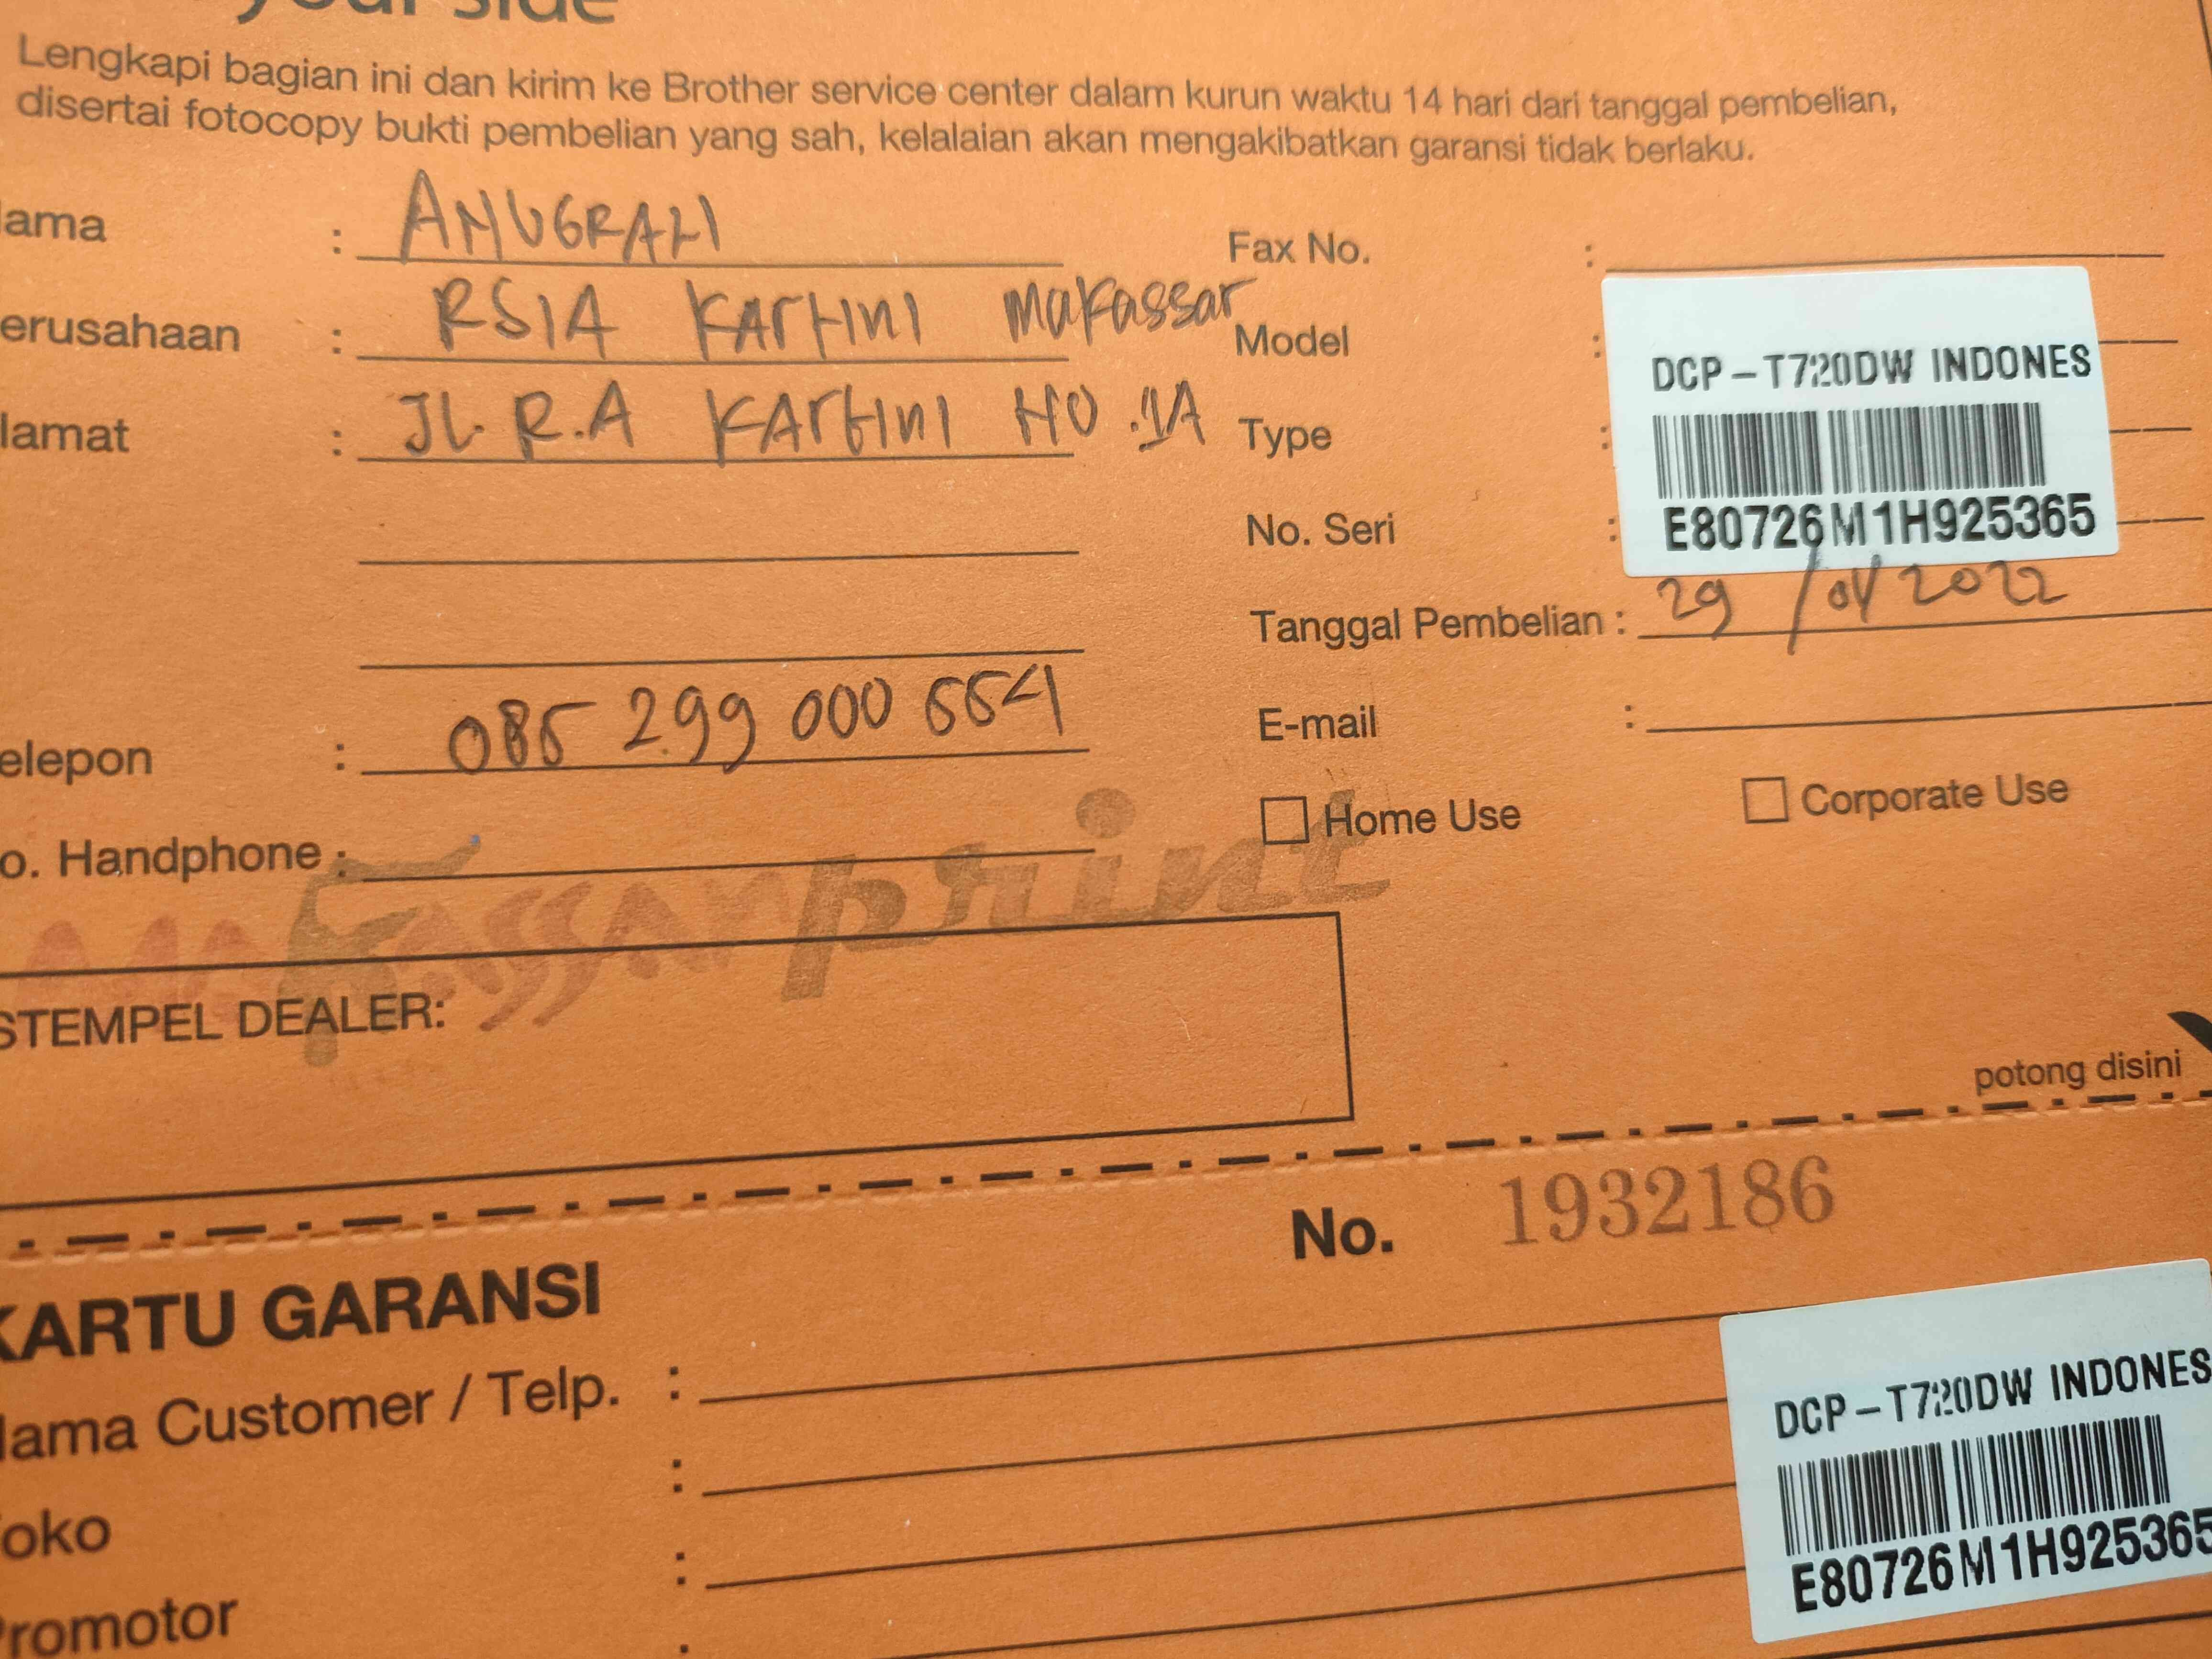 your side
Lengkapi bagian ini dan kirim ke Brother service center dalam kurun waktu 14 hari dari tanggal pembelian,
disertai fotocopy bukti pembelian yang sah, kelalaian akan mengakibatkan garansi tidak berlaku.
ama : ANUGRAH
erusahaan : RSIA Kartini Makassar
lamat : JL. R.A Kartini NO .1A
elepon : 085 299 000 554
o. Handphone :
Fax No. :
Model : DCP-T720DW INDONES
Type :
No. Seri : E80726M1H925365
Tanggal Pembelian : 29 / 04 2022
E-mail :
Home Use Corporate Use
Makassar print
STEMPEL DEALER:
potong disini
No. 1932186
KARTU GARANSI
ama Customer / Telp. :
oko :
romotor :
DCP-T720DW INDONES
E80726M1H925365